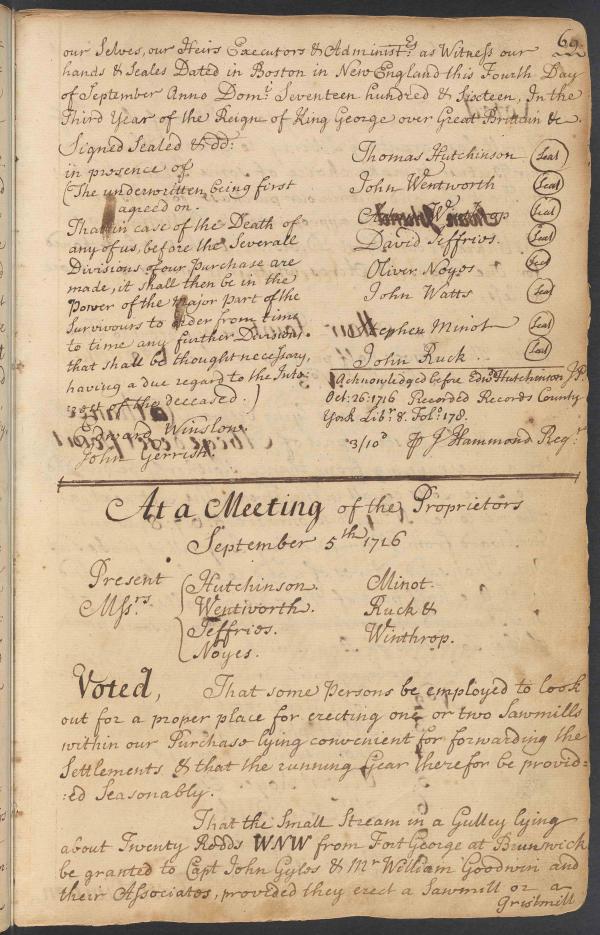 69.
our Selves, our Heirs Executors & Administ:rs as Witness our
hands & Seales Dated in Boston in New England this Fourth Day
of September Anno Dom:i Seventeen hundred & Sixteen, In the
Third Year of the Reign of King George over Great Britain &c.
Signed Sealed & dd:
in presence of
(The underwritten being first
agreed on.
That in case of the Death of
any of us, before the Severall
Divisions of our Purchase are
made, it shall then be in the
Power of the major part of the
Survivours to order from time
to time any further Division
that shall be thought necessary,
having a due regard to the Inte:
:rest of the deceased.)
Edward Winslow.
John Gerrish.
Thomas Hutchinson (Seal)
John Wentworth (Seal)
Adam Winthrop (Seal)
David Jeffries. (Seal)
Oliver Noyes (Seal)
John Watts (Seal)
Stephen Minot (Seal)
John Ruck (Seal)
Acknowledged before Edwd Hutchinson J.P.
Oct. 26: 1716 Recorded Records County
York Libr. 8. Fol:o 178.
3/10d ⅌ J Hammond Regr
At a Meeting of the Proprietors
September 5th 1716
Present
Messrs.
Hutchinson. Minot.
Wentworth. Ruck &
Jeffries. Winthrop.
Noyes.
Voted, That some Persons be employed to look
out for a proper place for erecting one or two Sawmills
within our Purchase lying convenient for forwarding the
Settlements & that the running Gear therefor be provid-
:ed Seasonably.
That the Small Stream in a Gulley lying
about Twenty Rodds WNW from Fort George at Brunswick
be granted to Capt John Gyles & Mr William Goodwin and
their Associates, provided they erect a Sawmill or a
Gristmill